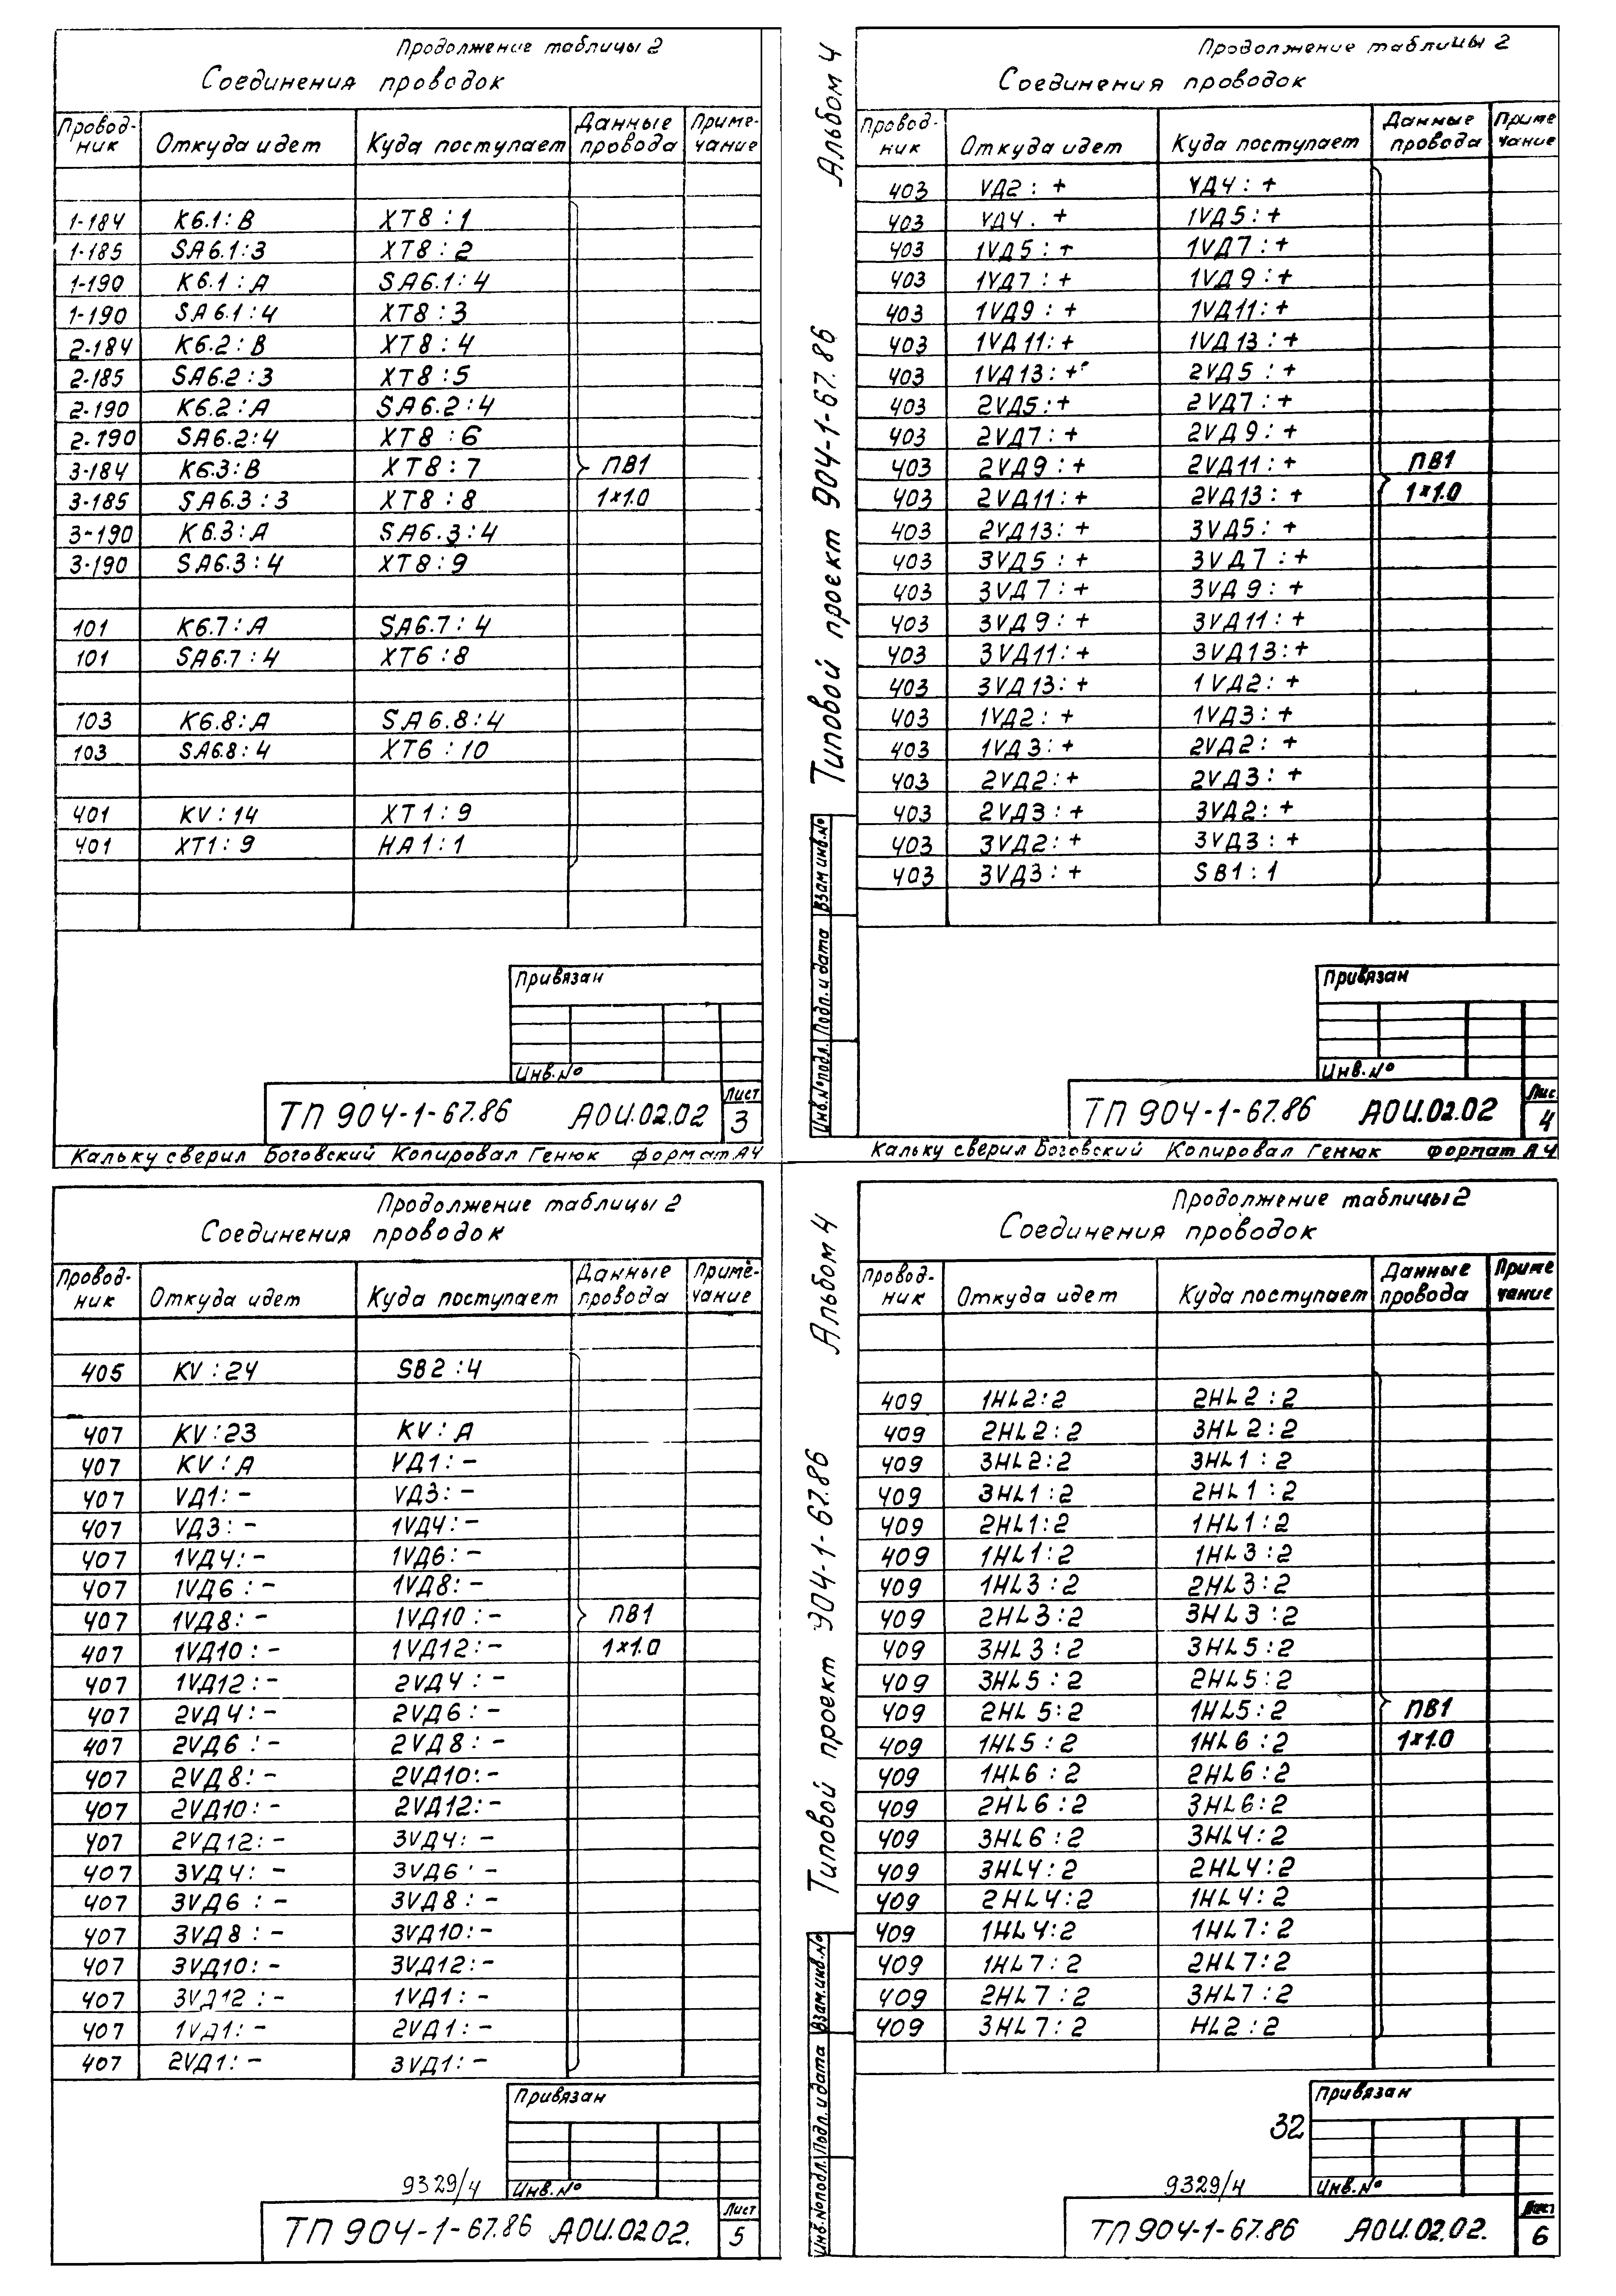 Продолжение таблицы 2
Соединения проводок
Провод-ник Откуда идет Куда поступает Данные провода Приме-чание
1-184 К6.1:В ХТ8:1
1-185 SA6.1:3 ХТ8:2
1-190 К6.1:А SA6.1:4
1-190 SA6.1:4 ХТ8:3
2-184 К6.2:В ХТ8:4
2-185 SA6.2:3 ХТ8:5
2-190 К6.2:А SA6.2:4
2-190 SA6.2:4 ХТ8:6
3-184 К6.3:В ХТ8:7 ПВ1
3-185 SA6.3:3 ХТ8:8 1×1.0
3-190 К6.3:А SA6.3:4
3-190 SA6.3:4 ХТ8:9
101 К6.7:А SA6.7:4
101 SA6.7:4 ХТ6:8
103 К6.8:А SA6.8:4
103 SA6.8:4 ХТ6:10
401 KV:14 ХТ1:9
401 ХТ1:9 НА1:1
Привязан
Инв.№
ТП 904-1-67.86 АОИ.02.02 Лист 3
Кальку сверил Боговский Копировал Генюк формат А4
Альбом 4
Типовой проект 904-1-67.86
Взам.инв.№
Подп. и дата
Инв.№ подл.
Продолжение таблицы 2
Соединения проводок
Провод-ник Откуда идет Куда поступает Данные провода Приме чание
403 VД2:+ VД4:+
403 VД4. + 1VД5:+
403 1VД5:+ 1VД7:+
403 1VД7:+ 1VД9:+
403 1VД9:+ 1VД11:+
403 1VД11:+ 1VД13:+
403 1VД13:+ 2VД5:+
403 2VД5:+ 2VД7:+
403 2VД7:+ 2VД9:+
403 2VД9:+ 2VД11:+ ПВ1
403 2VД11:+ 2VД13:+ 1×1.0
403 2VД13:+ 3VД5:+
403 3VД5:+ 3VД7:+
403 3VД7:+ 3VД9:+
403 3VД9:+ 3VД11:+
403 3VД11:+ 3VД13:+
403 3VД13:+ 1VД2:+
403 1VД2:+ 1VД3:+
403 1VД3:+ 2VД2:+
403 2VД2:+ 2VД3:+
403 2VД3:+ 3VД2:+
403 3VД2:+ 3VД3:+
403 3VД3:+ SB1:1
Привязан
Инв.№
ТП 904-1-67.86 АОИ.02.02 Лис 4
Кальку сверил Боговский Копировал Генюк формат А4
Продолжение таблицы 2
Соединения проводок
Провод-ник Откуда идет Куда поступает Данные провода Приме-чание
405 KV:24 SB2:4
407 KV:23 KV:А
407 KV:А VД1:-
407 VД1:- VД3:-
407 VД3:- 1VД4:-
407 1VД4:- 1VД6:-
407 1VД6:- 1VД8:-
407 1VД8:- 1VД10:- ПВ1
407 1VД10:- 1VД12:- 1×1.0
407 1VД12:- 2VД4:-
407 2VД4:- 2VД6:-
407 2VД6:- 2VД8:-
407 2VД8:- 2VД10:-
407 2VД10:- 2VД12:-
407 2VД12:- 3VД4:-
407 3VД4:- 3VД6:-
407 3VД6:- 3VД8:-
407 3VД8:- 3VД10:-
407 3VД10:- 3VД12:-
407 3VД12:- 1VД1:-
407 1VД1:- 2VД1:-
407 2VД1:- 3VД1:-
Привязан
9329/4 Инв.№
ТП 904-1-67.86 АОИ.0202. Лист 5
Альбом 4
Типовой проект 904-1-67.86
Взам.инв.№
Подп. и дата
Инв.№ подл.
Продолжение таблицы 2
Соединения проводок
Провод-ник Откуда идет Куда поступает Данные провода Приме чание
409 1HL2:2 2HL2:2
409 2HL2:2 3HL2:2
409 3HL2:2 3HL1:2
409 3HL1:2 2HL1:2
409 2HL1:2 1HL1:2
409 1HL1:2 1HL3:2
409 1HL3:2 2HL3:2
409 2HL3:2 3HL3:2
409 3HL3:2 3HL5:2
409 3HL5:2 2HL5:2
409 2HL5:2 1HL5:2 ПВ1
409 1HL5:2 1HL6:2 1×1.0
409 1HL6:2 2HL6:2
409 2HL6:2 3HL6:2
409 3HL6:2 3HL4:2
409 3HL4:2 2HL4:2
409 2HL4:2 1HL4:2
409 1HL4:2 1HL7:2
409 1HL7:2 2HL7:2
409 2HL7:2 3HL7:2
409 3HL7:2 HL2:2
Привязан
32
9329/4 Инв.№
ТП 904-1-67.86 АОИ.02.02. Лист 6